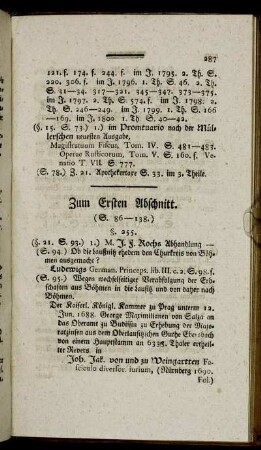 287
121. f. 174. f. 244. f. im J. 1795. 2. Th. S.
220. 306. f. im J. 1796. 1. Th. S. 46. 2. Th.
S. 31—34. 317—321. 345—347. 373—375.
im J. 1797. 2. Th. S. 574. f. im J. 1798. 2.
Th. S. 246—249. im J. 1799. 1. Th. S. 166
—169. im J. 1800. 1. Th. S. 40—42.
(§. 15. S. 73.) 1.) im Promtuario nach der Mül-
lerschen neuesten Ausgabe,
Magistratuum Fiscus, Tom. IV. S. 481—483.
Operae Rusticorum, Tom. V. S. 160. f. Ve-
natio T. VII. S. 777.
(S. 78.) Z. 21. Apothekertaxe S. 33. im 3. Theile.
Zum Ersten Abschnitt.
(S. 86—138.)
§. 255.
(§. 21. S. 93.) 1.) M. J. F. Kochs Abhandlung —
(S. 94.) Ob die Laußnitz ehedem den Churkreis von Böh-
men ausgemacht?
Ludewigs German. Princeps. lib. III. c. 2. S. 98. f.
(S. 95.) Wegen wechselseitiger Verabfolgung der Erb-
schaften aus Böhmen in die Lausitz und von daher nach
Böhmen.
Der Kaiserl. Königl. Kammer zu Prag unterm 12.
Jun. 1688. George Maximilianen von Salza an
das Oberamt zu Budißin zu Erhebung der Majo-
ratzinsen aus dem Oberlausitzischen Guthe Ebersbach
von einem Hauptstamm an Thaler ertheil-
ter Revers. in
Joh. Jak. von und zu Weingartten Fa-
sciculo diversor. iurium, (Nürnberg 1690.
Fol.)